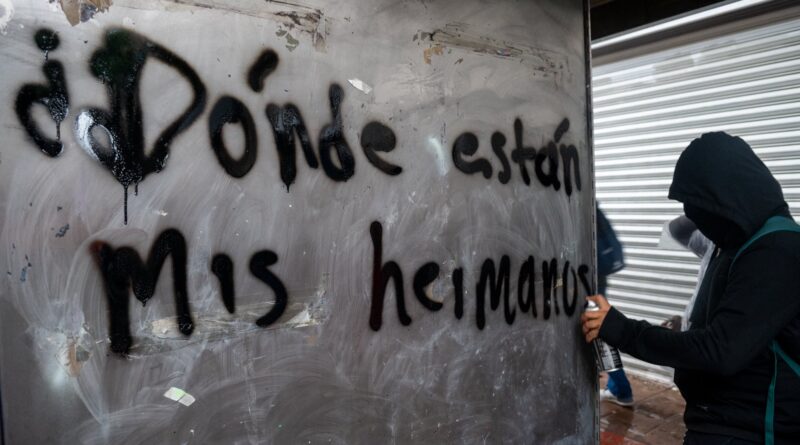 ¿Dónde están
Mis hermanos